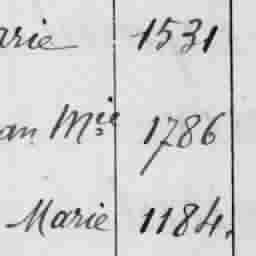 arie 1531
an Mie 1786
Marie 1184.